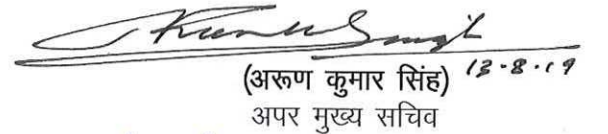 (अरूण कुमार सिंह) 13-8-19
अपर मुख्य सचिव